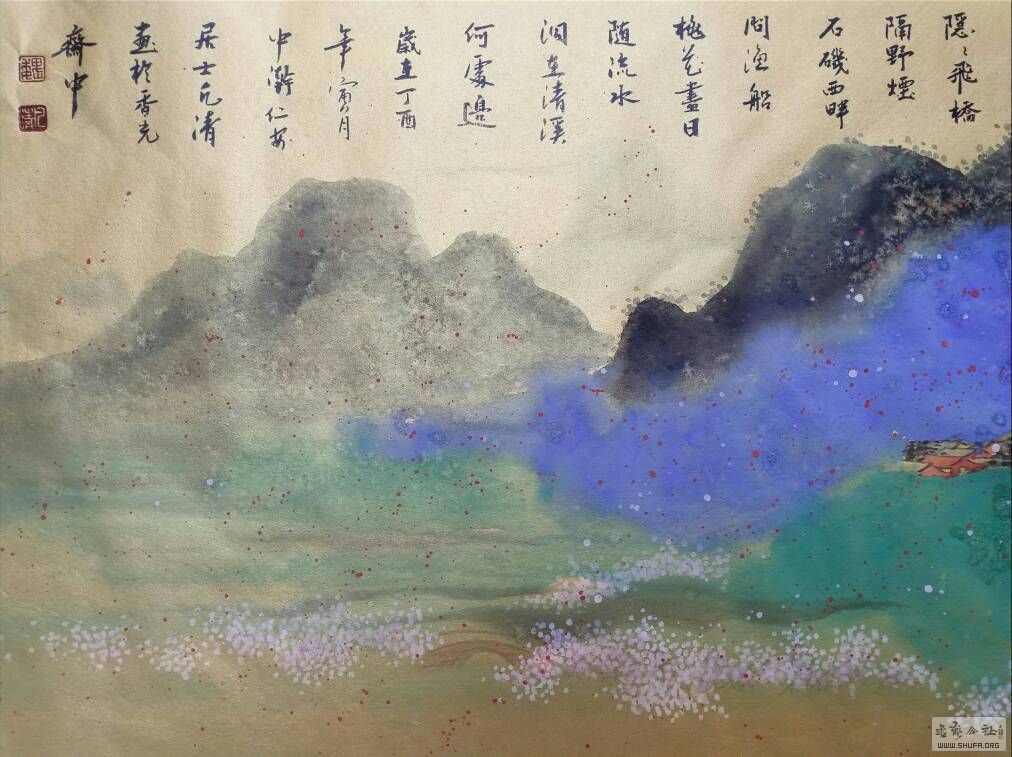 隱〻飛橋
隔野煙
石磯西畔
問漁船
桃花盡日
随流水
洞在清溪
何處邊
歲在丁酉
年寅月
中澣仁安
居士 清
畫於香光
齋中
書藝公社
WWW.SHUFA.ORG